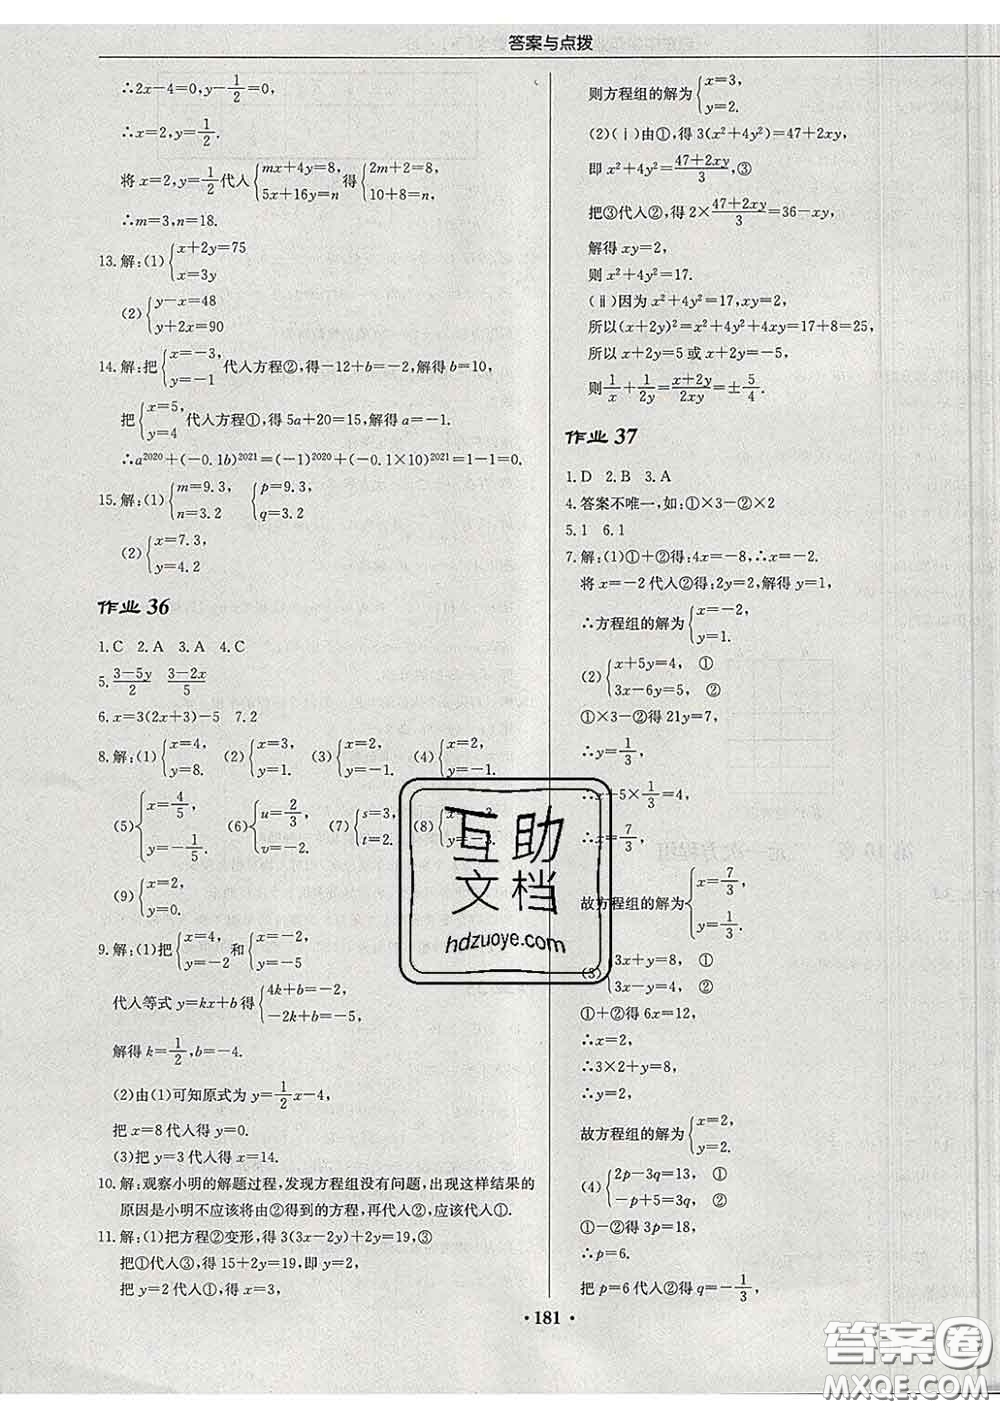 答案与点拨
∴2x-4=0,y-1/2=0,
∴x=2,y=1/2.
将x=2,y=1/2代入{mx+4y=8, 5x+16y=n 得{2m+2=8, 10+8=n,
∴m=3,n=18.
13.解:(1){x+2y=75 x=3y
(2){y-x=48 y+2x=90
14.解:把{x=-3, y=-1 代入方程②,得-12+b=-2,解得b=10,
把{x=5, y=4 代入方程①,得5a+20=15,解得a=-1.
∴a²⁰²⁰+(-0.1b)²⁰²¹=(-1)²⁰²⁰+(-0.1×10)²⁰²¹=1-1=0.
15.解:(1){m=9.3, n=3.2 {p=9.3, q=3.2
(2){x=7.3, y=4.2
作业 36
1.C 2.A 3.A 4.C
5.(3-5y)/2 (3-2x)/5
6.x=3(2x+3)-5 7.2
8.解:(1){x=4, y=8. (2){x=3, y=1. (3){x=2, y=-1. (4){x=2, y=-1.
(5){x=4/5, y=-1/5. (6){u=2/3, v=-2. (7){s=3, t=2. (8)
(9){x=2, y=0.
9.解:(1)把{x=4, y=-2 和{x=-2, y=-5
代入等式y=kx+b得{4k+b=-2, -2k+b=-5,
解得k=1/2,b=-4.
(2)由(1)可知原式为y=1/2x-4,
把x=8代入得y=0.
(3)把y=3代入得x=14.
10.解:观察小明的解题过程,发现方程组没有问题,出现这样结果的
原因是小明不应该将由②得到的方程,再代入②,应该代入①.
11.解:(1)把方程②变形,得3(3x-2y)+2y=19,③
把①代入③,得15+2y=19,即y=2,
把y=2代入①,得x=3,
则方程组的解为{x=3, y=2.
(2)(ⅰ)由①,得3(x²+4y²)=47+2xy,
即x²+4y²=(47+2xy)/3,③
把③代入②,得2×(47+2xy)/3=36-xy,
解得xy=2,
则x²+4y²=17.
(ⅱ)因为x²+4y²=17,
所以(x+2y)²=x²+4y²+4xy=17+8=25,
所以x+2y=5或x+2y=-5,
则1/x+1/2y=(x+2y)/2xy=±5/4.
作业 37
1.D 2.B 3.A
4.答案不唯一,如:①×3-②×2
5.1 6.1
7.解:(1)①+②得:4x=-8,∴x=-2.
将x=-2代入②得:2y=2,解得y=1,
∴方程组的解为{x=-2, y=1.
(2){x+5y=4, ① 3x-6y=5, ②
①×3-②得21y=7,
∴y=1/3,
∴x+5×1/3=4,
∴x=7/3,
故方程组的解为{x=7/3, y=1/3.
(3){3x+y=8, ① 3x-y=4, ②
①+②得6x=12,
∴x=2,
∴3×2+y=8,
∴y=2,
故方程组的解为{x=2, y=2.
(4){2p-3q=13, ① -p+5=3q, ②
①-②得3p=18,
∴p=6.
把p=6代入②得q=-1/3,
• 181 •
互助
文档
hdzuoye.com
答案圈
MXQE.COM